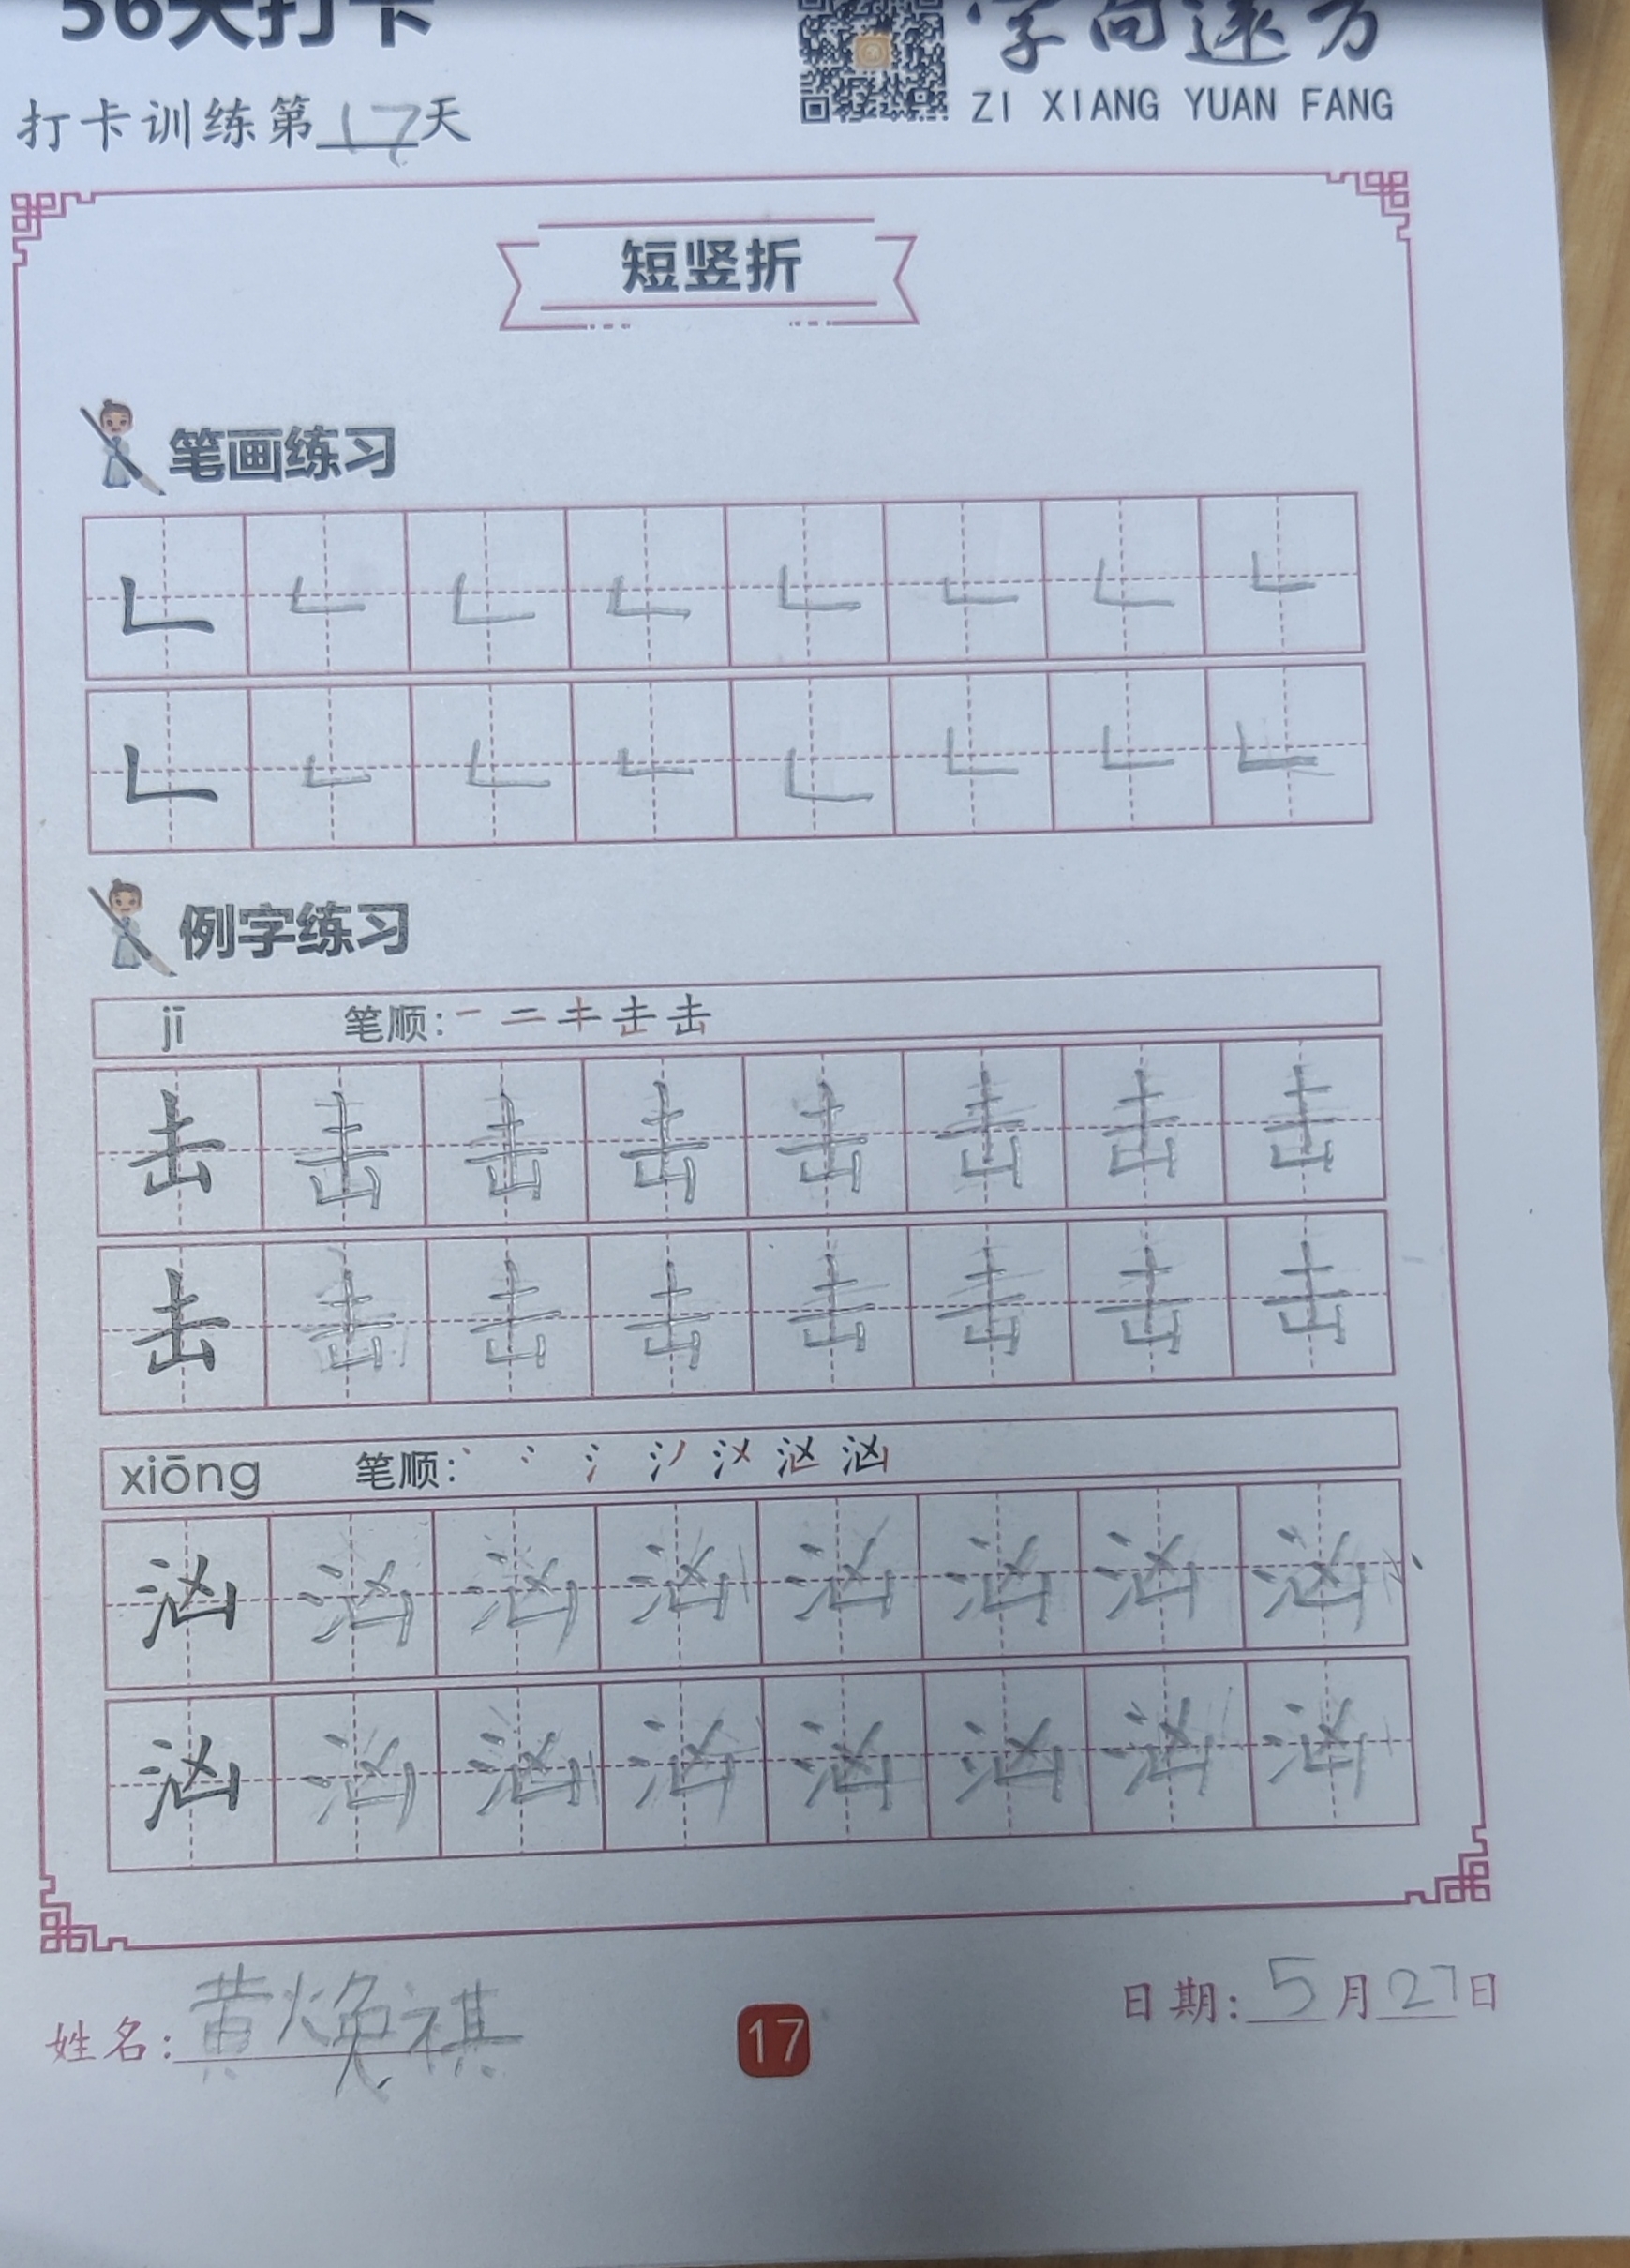 56天打卡
字向远方
ZI XIANG YUAN FANG
打卡训练第17天
短竖折
笔画练习
例字练习
jī 笔顺: 一 二 キ 击 击
击 击 击 击 击 击 击 击
击 击 击 击 击 击 击 击
xiōng 笔顺: 汹
汹 汹 汹 汹 汹 汹 汹 汹
汹 汹 汹 汹 汹 汹 汹 汹
姓名: 黄焕祺
17
日期: 5月27日